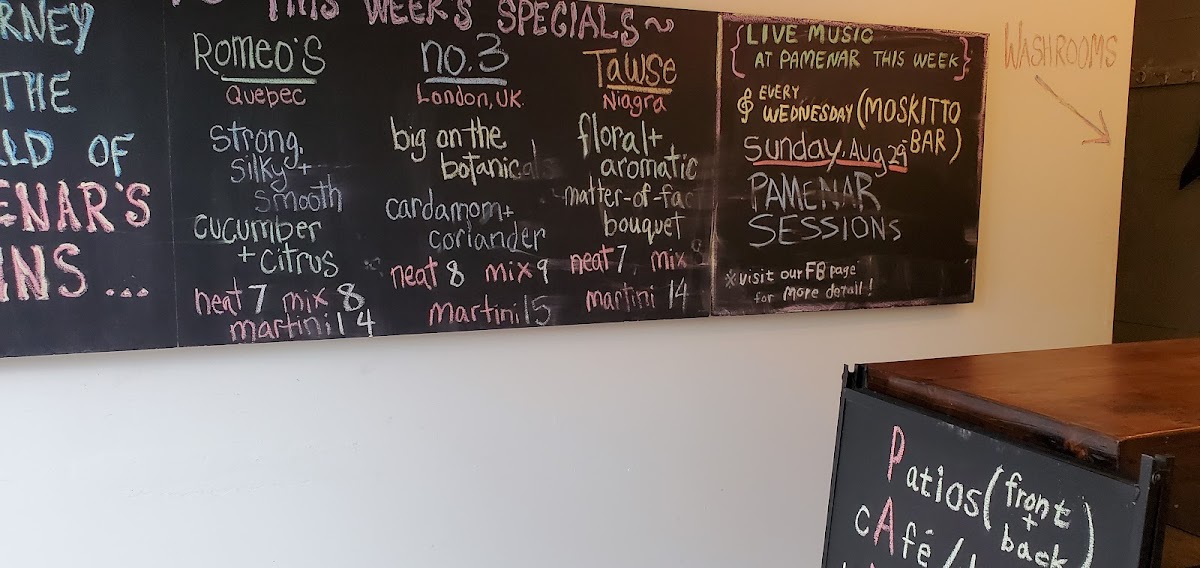 RNEY
THE
LD OF
ENAR'S
INS ...
THIS WEEK'S SPECIALS~
Romeo's
Quebec
strong,
silky +
smooth
cucumber
+ citrus
neat 7 mix 8
martini 14
no. 3
London, UK.
big on the
botanicals
cardamom +
coriander
neat 8 mix 9
martini 15
Tawse
Niagra
floral +
aromatic
matter-of-fac
bouquet
neat 7 mix
martini 14
{LIVE MUSIC
AT PAMENAR THIS WEEK}
EVERY
WEDNESDAY (MOSKITTO
BAR)
Sunday, Aug 29
PAMENAR
SESSIONS
*visit our FB page
for more detail!
WASHROOMS
Patios (front
+
back)
cAfé /